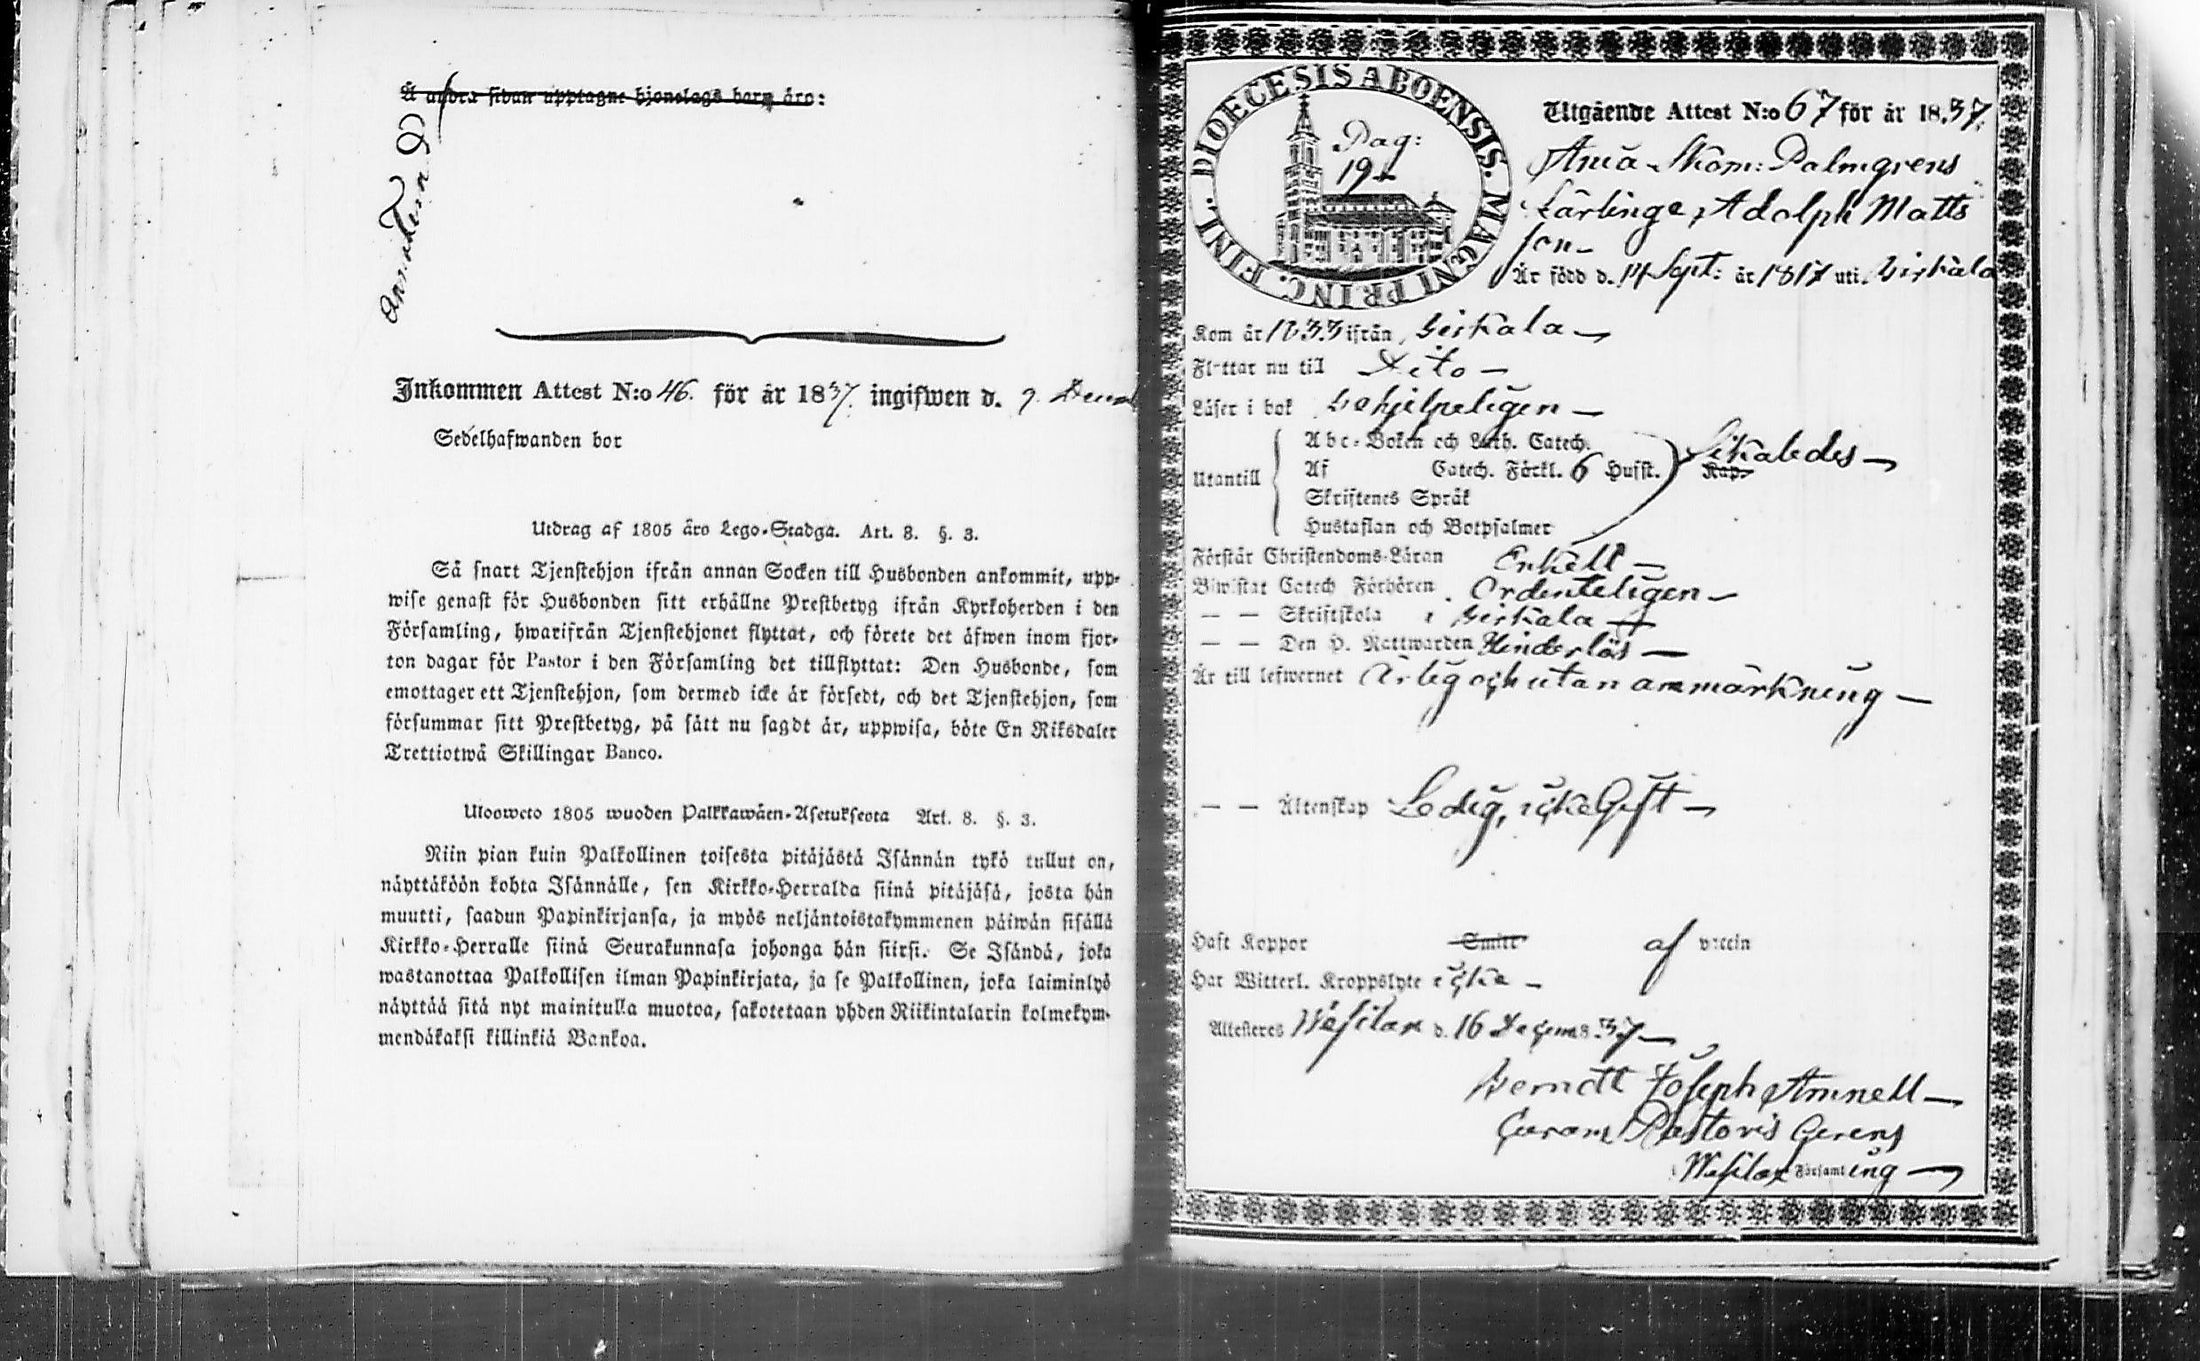 Å andra sidan upptagne hjonelags barn äro:
Inkommen Attest N:o 46. för år 1837. ingifwen d. 9.
Sedelhafwanden bor
Utdrag af 1805 åro Lego-Stadga. Art. 8. §. 3.
Så snart Tjenstehjon ifrån annan Socken till Husbonden ankommit, upp-
wise genast för Husbonden sitt erhållne Prestbetyg ifrån Kyrkoherden i den
Församling, hwarifrån Tjenstehjonet flyttat, och förete det äfwen inom fjor-
ton dagar för Pastor i den Församling det tillflyttat: Den Husbonde, som
emottager ett Tjenstehjon, som dermed icke är försedt, och det Tjenstehjon, som
försummar sitt Prestbetyg, på sätt nu sagdt är, uppwisa, böte En Riksdaler
Trettiotwå Skillingar Banco.
Uloosweto 1805 wuoden Palkkawäen-Asetuksesta Art. 8. §. 3.
Niin pian kuin Palkollinen toisesta pitäjästä Isännän tykö tullut on,
näyttäköön kohta Isännälle, sen Kirkko-Herralda siinä pitäjäsä, josta hän
muutti, saadun Papinkirjansa, ja myös neljäntoistakymmenen päiwän sisällä
Kirkko-Herralle siinä Seurakunnasa johonga hän siirsi. Se Isändä, joka
wastanottaa Palkollisen ilman Papinkirjata, ja se Palkollinen, joka laiminlyö
näyttää sitä nyt mainitulla muotoa, sakotetaan yhden Riikintalarin kolmekym-
mendäkaksi killinkiä Bankoa.
DIOECESIS ABOENSIS. MAGNI PRINC. FINL.
Pag:
191
Utgående Attest N:o 67 för år 1837.
Skom: Palmgrens
Lärlinge, Adolph Matts
son
Är född d. 14 Sept: år 1817 uti Birkala
Kom år 1833 ifrån Birkala
Flyttar nu till Dito
Läser i bok behjelpeligen
Abc-Boken och Luth. Catech.
Utantill Af Catech. Förkl. 6 Husst. Kap. Likaledes
Skriftenes Språk
Hustaflan och Botpsalmer
Förstår Christendoms-Läran Enkelt
Biwistat Catech Förhören Ordenteligen
— — Skriftskola i Birkala
— — Den H. Nattwarden Hinderlös
Är till lefwernet Ärlig och utan anmärkning
— — Äktenskap Ledig, icke Gift
Haft Koppor Smitt af naturen
Har Witterl. Kroppslyte icke
Attesteres Wesilax d. 16 Decem 1837
Berndt Joseph Amnell
Curam Pastoris Gerens
i Wesilax Församling